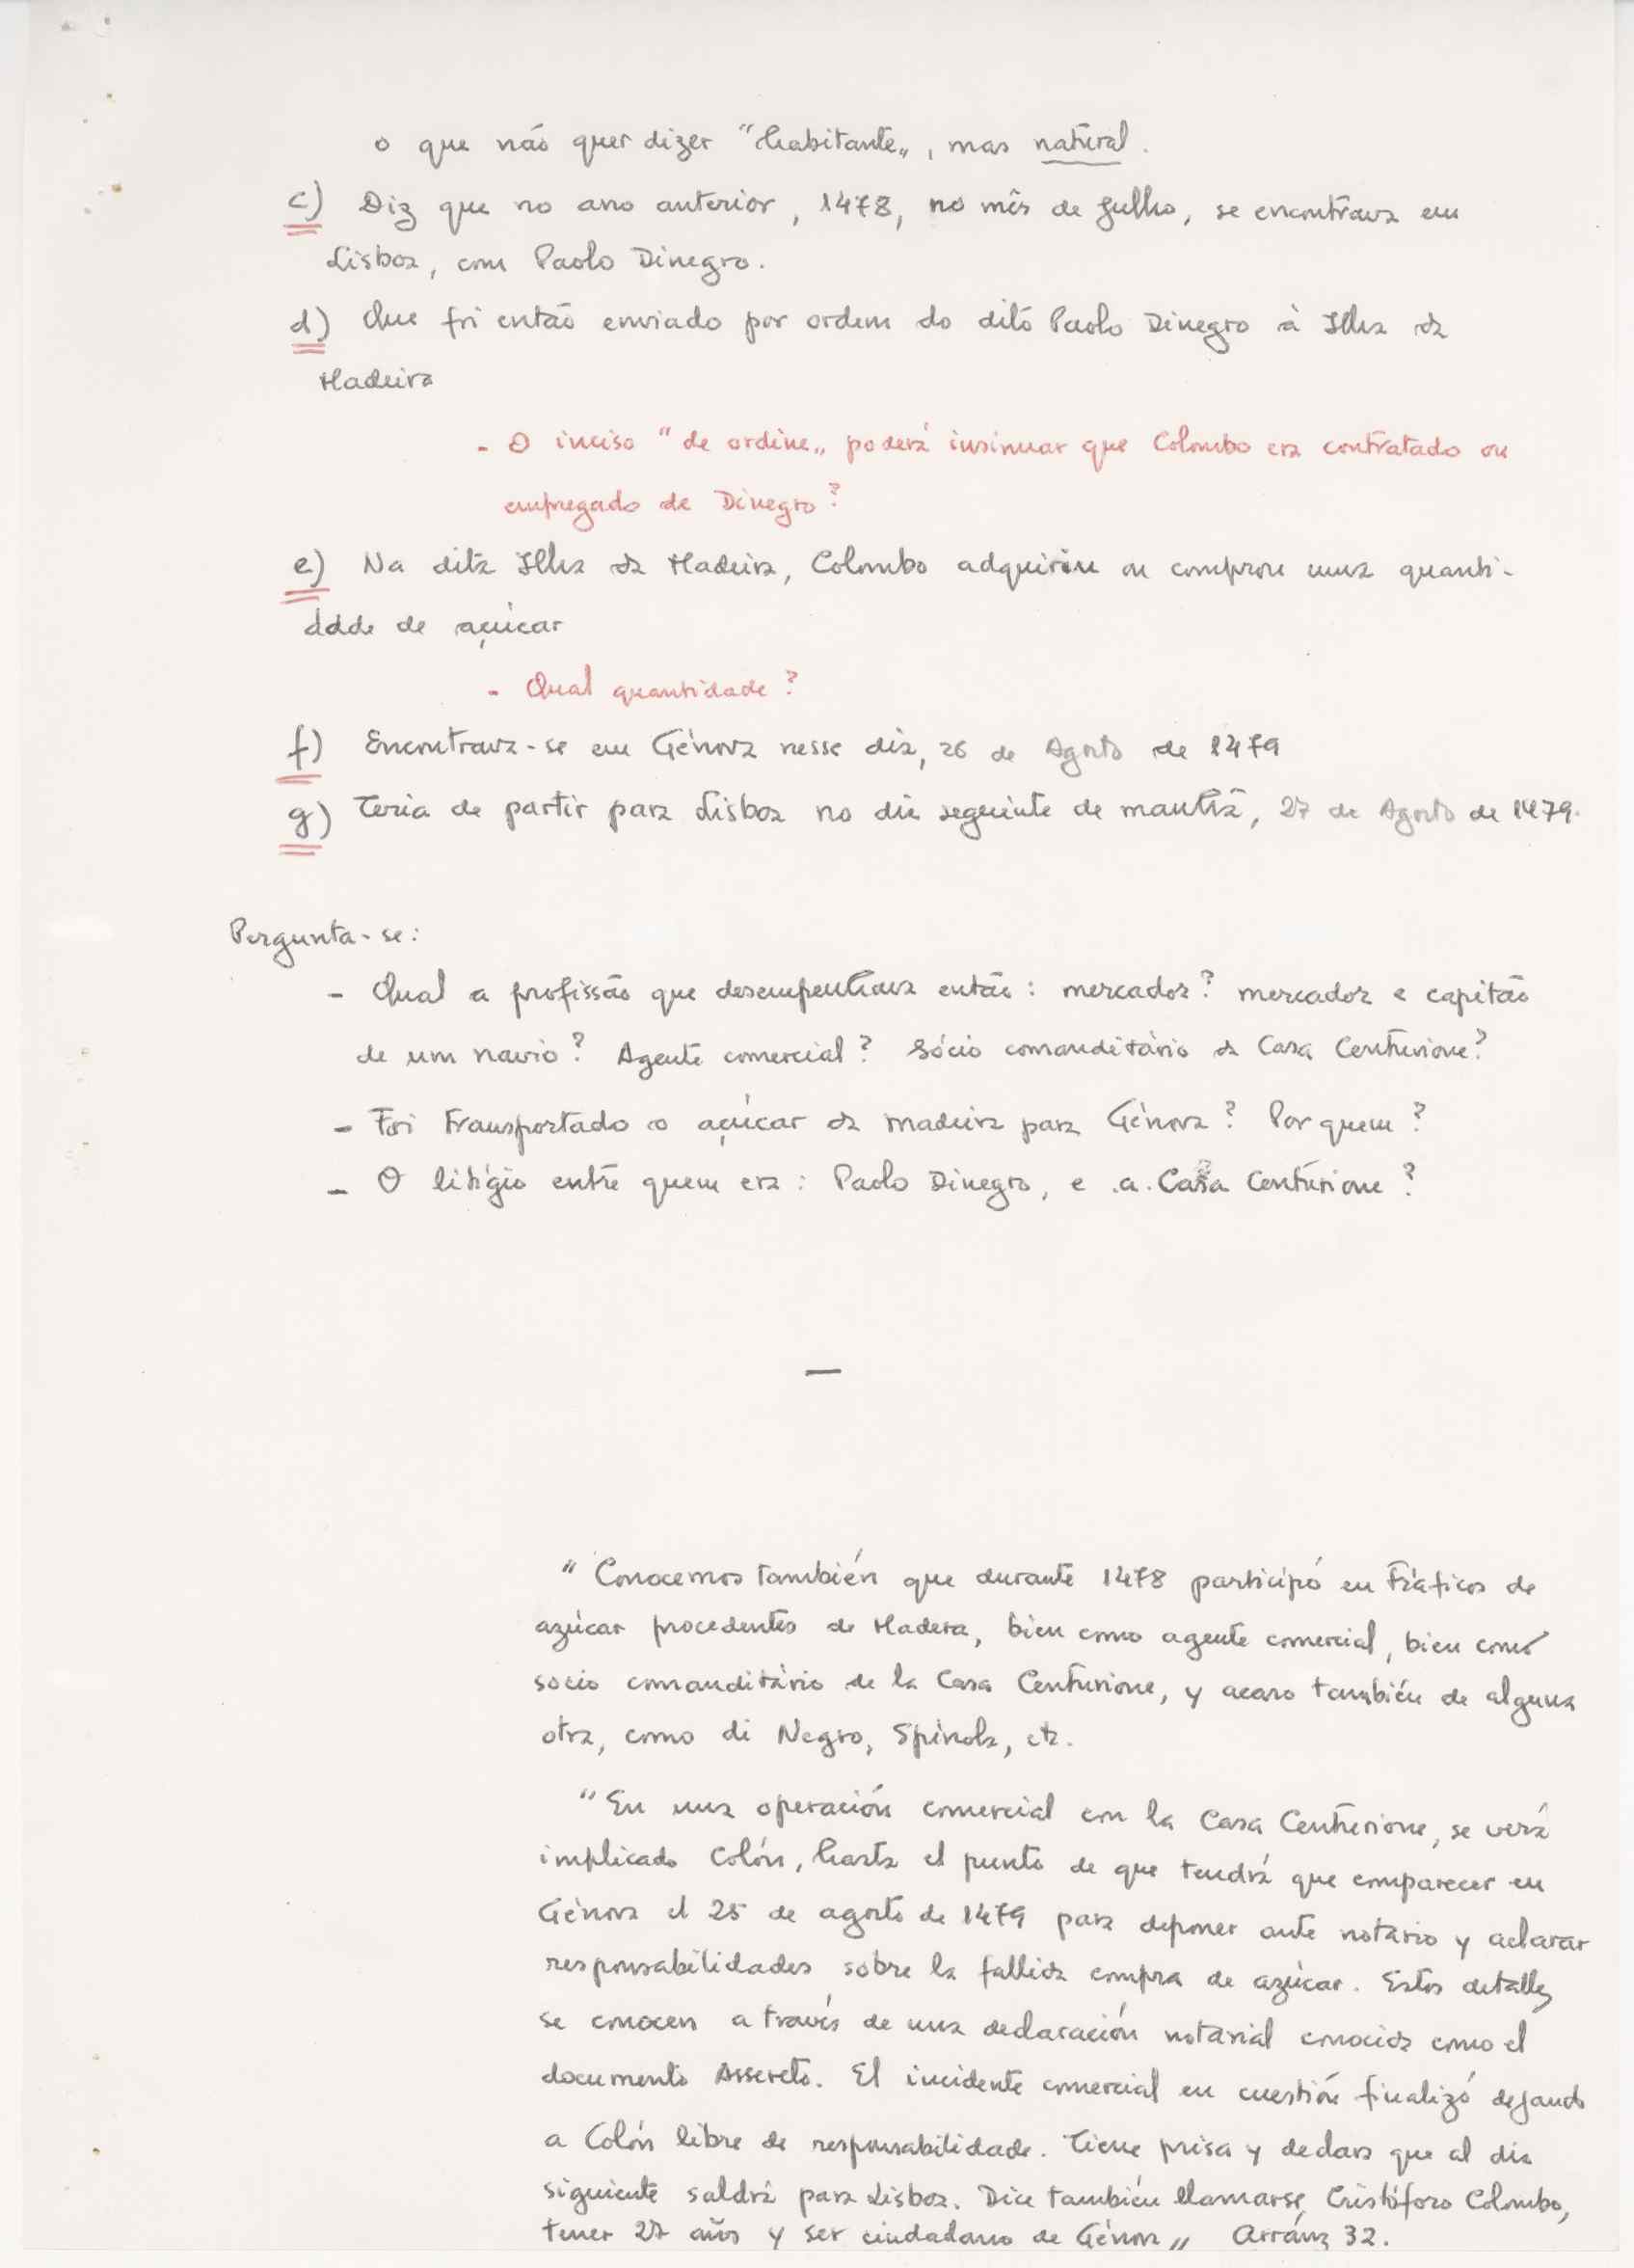 o que não quer dizer "habitante", mas natural.
c) Diz que no ano anterior, 1478, no mês de Julho, se encontrava em
Lisboa, com Paolo Dinegro.
d) Que foi então enviado por ordem do dito Paolo Dinegro à Ilha da
Madeira
- O inciso "de ordine" poderá insinuar que Colombo era contratado ou
empregado de Dinegro?
e) Na dita Ilha da Madeira, Colombo adquiriu ou comprou uma quanti-
dade de açúcar
- Qual quantidade?
f) Encontrava-se em Génova nesse dia, 26 de Agosto de 1479
g) Teria de partir para Lisboa no dia seguinte de manhã, 27 de Agosto de 1479.
Pergunta-se:
- Qual a profissão que desempenhava então: mercador? mercador e capitão
de um navio? Agente comercial? Sócio comanditário da Casa Centurione?
- Foi transportado o açúcar da madeira para Génova? Por quem?
- O litígio entre quem era: Paolo Dinegro, e a Casa Centurione?
—
"Conocemos también que durante 1478 participó en tráficos de
azúcar procedentes de Madera, bien como agente comercial, bien como
socio comanditário de la Casa Centurione, y acaso también de alguna
otra, como di Negro, Spínola, etc.
"En una operación comercial con la Casa Centurione, se verá
implicado Colón, hasta el punto de que tendrá que comparecer en
Génova el 25 de agosto de 1479 para deponer ante notário y aclarar
responsabilidades sobre la fallida compra de azúcar. Estos detalles
se conocen a través de una declaración notarial conocida como el
documento Assereto. El incidente comercial en cuestión finalizó dejando
a Colón libre de responsabilidade. Tiene prisa y declara que al dia
siguiente saldrá para Lisboa. Dice también llamarse, Cristóforo Colombo,
tener 27 años y ser ciudadano de Génova" Arránz 32.